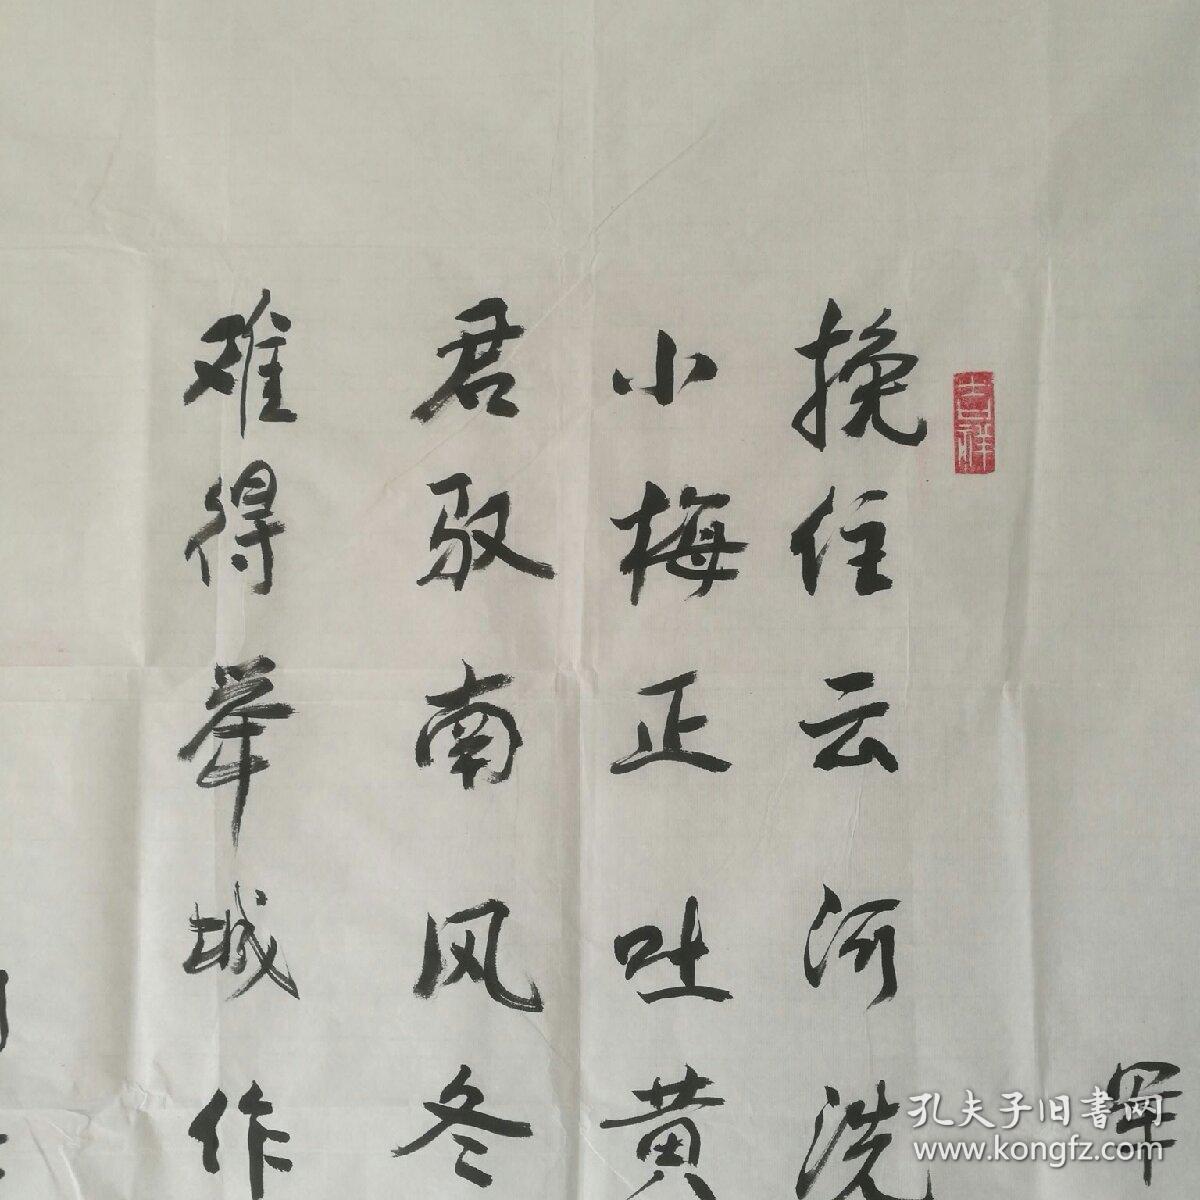 吉祥
挽住云河洗
小梅正吐黄
君驭南风冬
难得举城作
孔夫子旧书网
www.kongfz.com